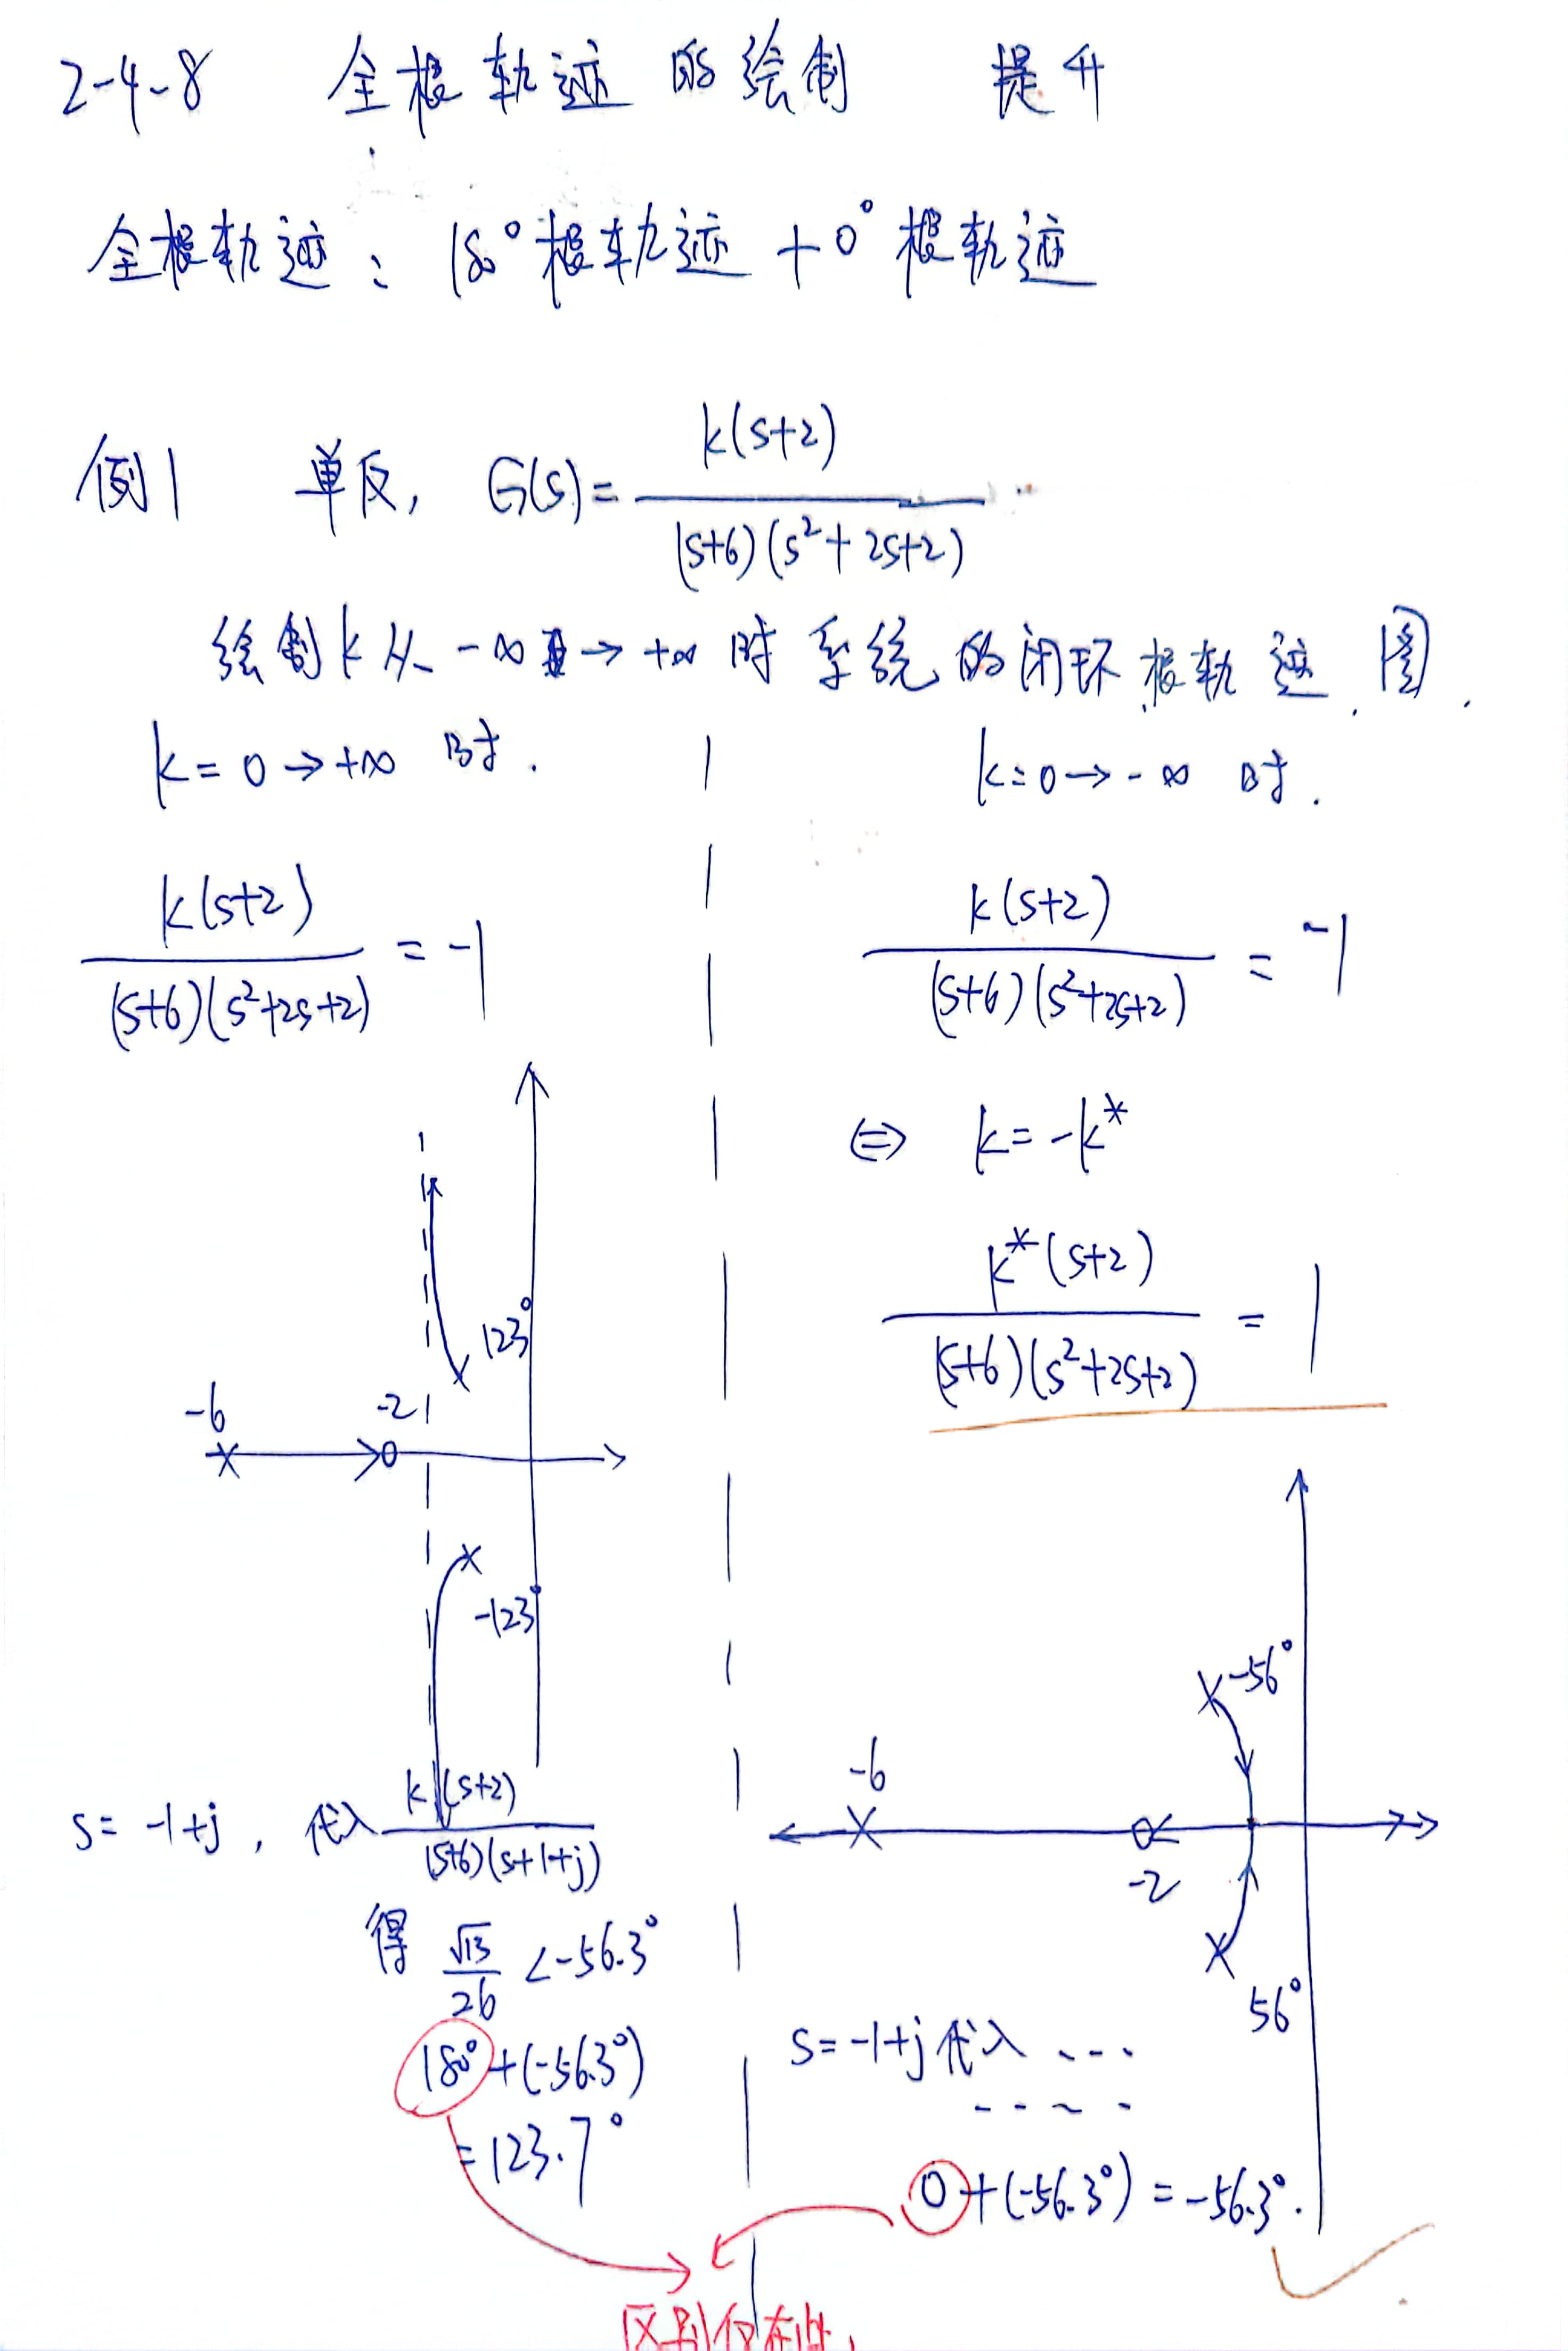 2-4-8 全根轨迹的绘制 提升
全根轨迹：180°根轨迹+0°根轨迹
例1 单反，G(s)=k(s+2)/(s+6)(s²+2s+2)
绘制k从-∞→+∞时系统的闭环根轨迹图.
k=0→+∞ 时.
k(s+2)/(s+6)(s²+2s+2) = -1
123°
-6
-2
-123°
s=-1+j，代入 k(s+2)/(s+6)(s+1+j)
得 √13/26 ∠-56.3°
180°+(-56.3°)
=123.7°
k=0→-∞ 时.
k(s+2)/(s+6)(s²+2s+2) = -1
⇔ k=-k*
k*(s+2)/(s+6)(s²+2s+2) = 1
-56°
-6
-2
56°
s=-1+j代入 ...
....
0+(-56.3°)=-56.3°.
区别仅在此.